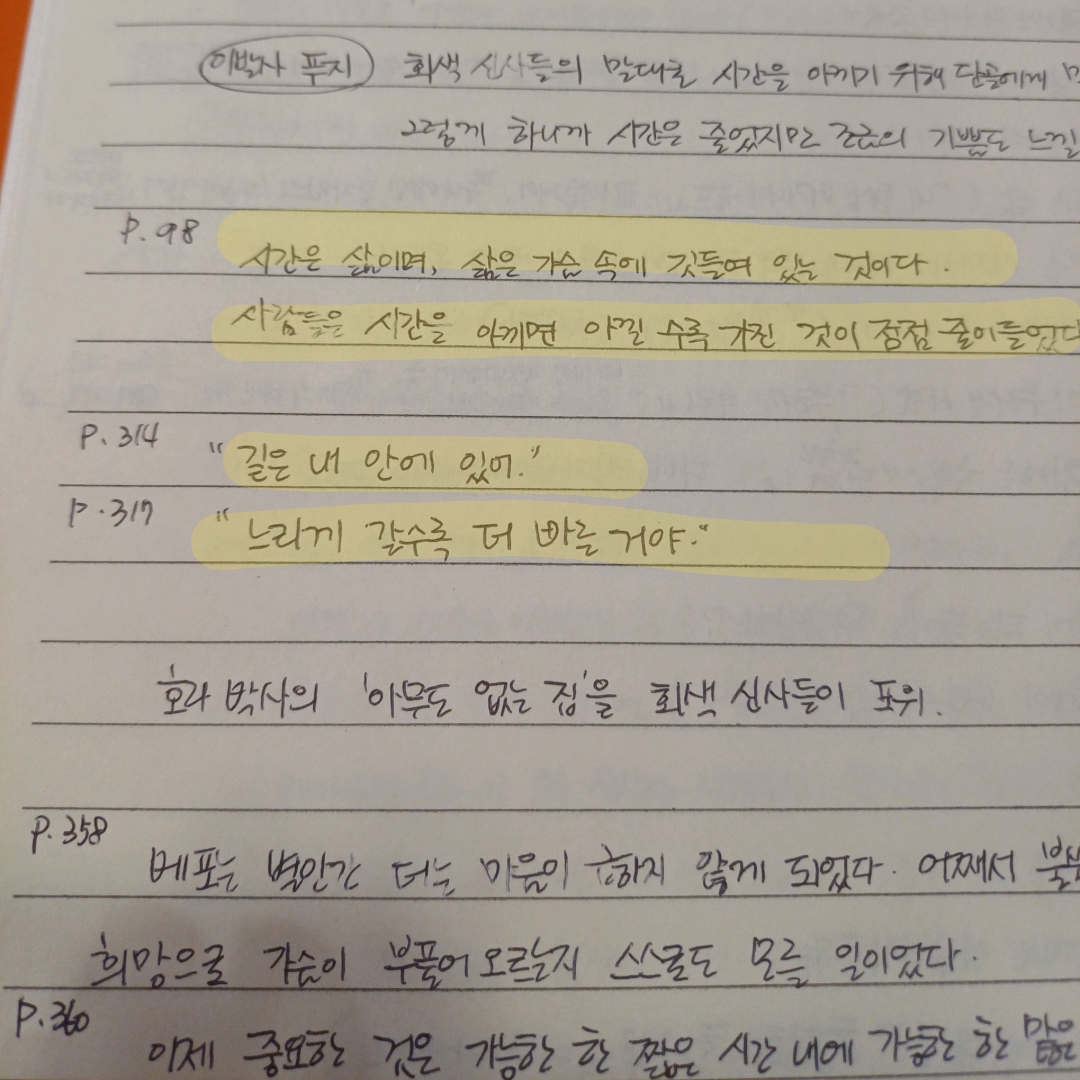 이발사 푸지 회색 신사들의 말대로 시간을 아끼기 위해 단골에게
그렇게 하니까 시간은 줄었지만 조금의 기쁨도 느낄
P.98 시간은 삶이며, 삶은 가슴 속에 깃들여 있는 것이다.
사람들은 시간을 아끼면 아낄 수록 가진 것이 점점 줄어들었다
P.314 "길은 내 안에 있어."
P.317 "느리게 갈수록 더 빠를 거야."
호라 박사의 '아무도 없는 집'을 회색 신사들이 포위.
P.358 베포는 별안간 더는 마음이 급하지 않게 되었다. 어째서
희망으로 가슴이 부풀어오르는지 스스로도 모를 일이었다.
P.360 이제 중요한 것은 가능한 한 짧은 시간 내에 가능한 한 많은